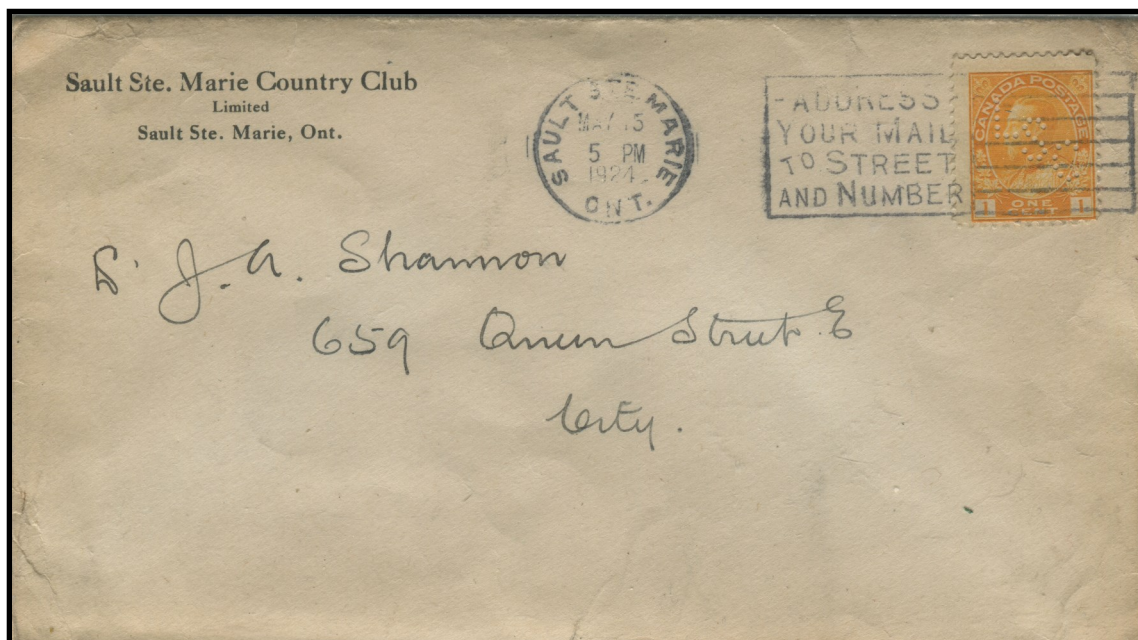 Sault Ste. Marie Country Club
Limited
Sault Ste. Marie, Ont.
SAULT STE. MARIE
MAY 15
5 PM
1924
ONT.
ADDRESS
YOUR MAIL
TO STREET
AND NUMBER
CANADA POSTAGE
1 ONE CENT 1
J. A. Shannon
659 Queen Street E
City.